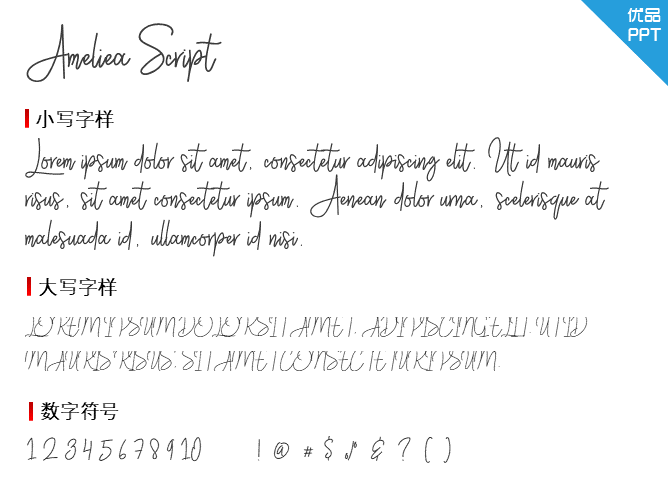 优品
PPT
Ameliea Script
小写字样
Lorem ipsum dolor sit amet, consectetur adipiscing elit. Ut id mauris
risus, sit amet consectetur ipsum. Aenean dolor urna, scelerisque at
malesuada id, ullamcorper id nisi.
大写字样
LOREM IPSUM DOLOR SIT AMET, ADIPISCING ELIT. UT ID
MAURIS RISUS, SIT AMET CONSECTETUR IPSUM.
数字符号
1 2 3 4 5 6 7 8 9 10 ! @ # $ % & ? ( )